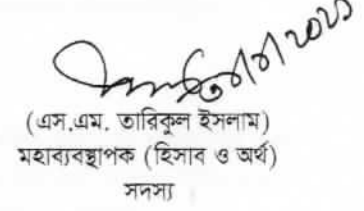 (এস.এম. তারিকুল ইসলাম)
মহাব্যবস্থাপক (হিসাব ও অর্থ)
সদস্য